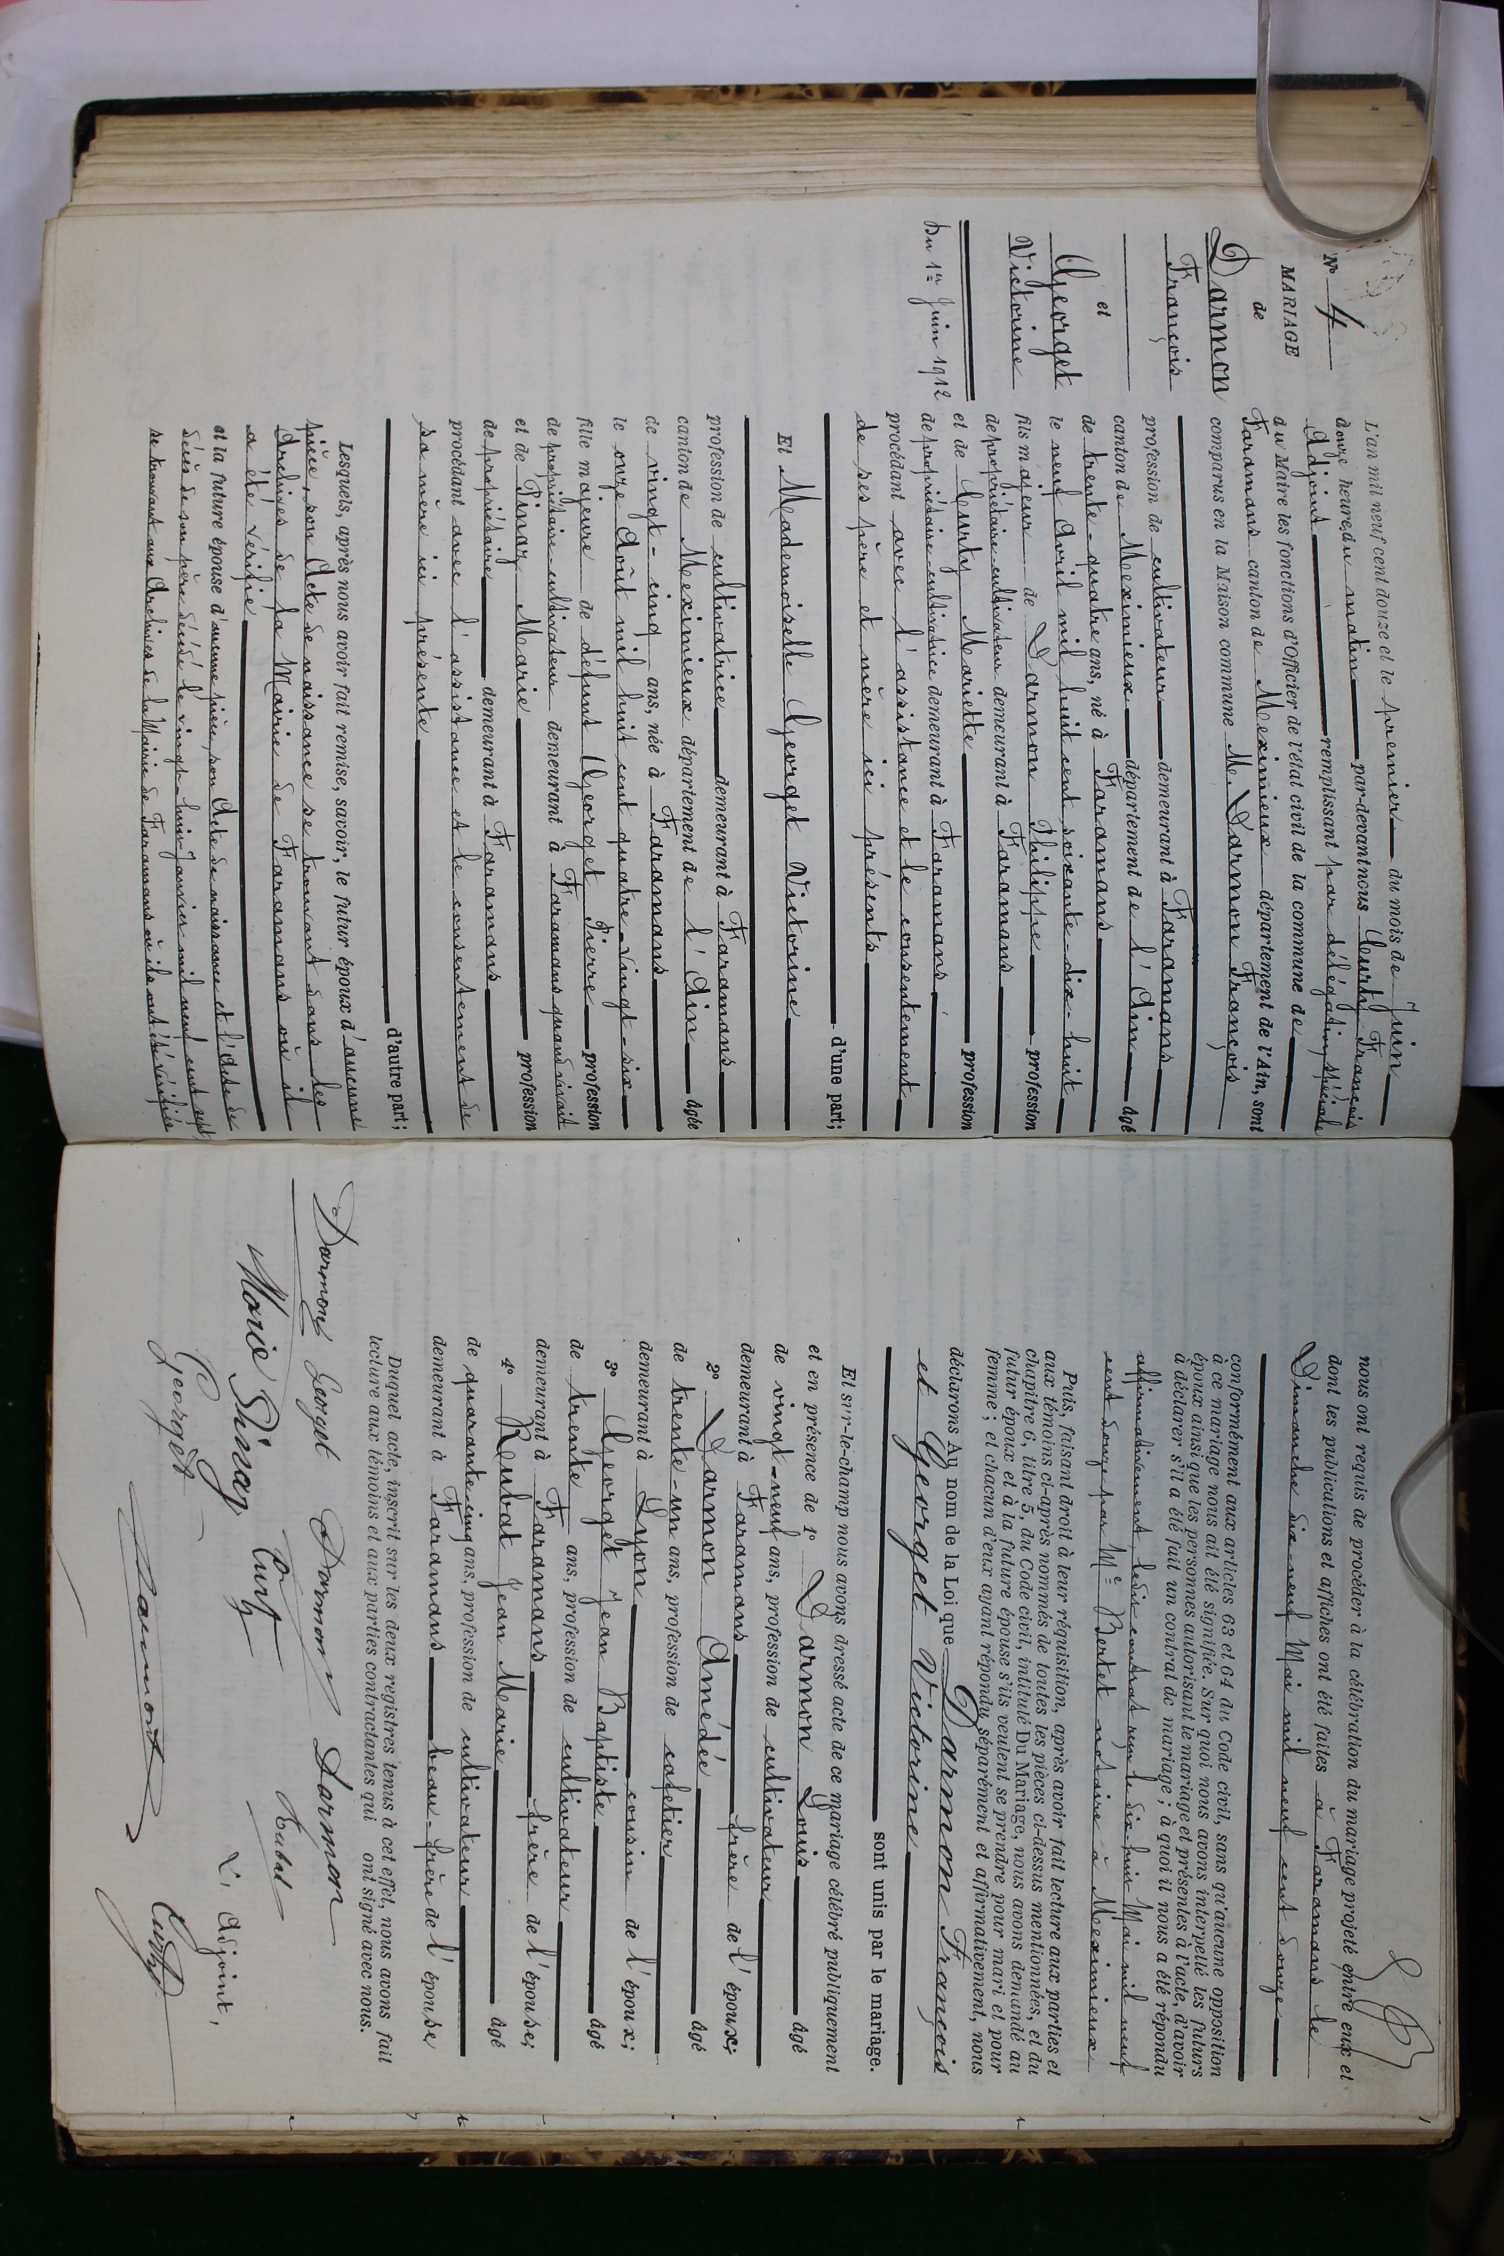 N° 4
MARIAGE
de
Darmon
François
et
Georget
Victorine
Du 1er Juin 1912
L'an mil neuf cent douze et le premier du mois de Juin
à onze heures du matin par-devant nous Curty François
Adjoint remplissant par délégation spéciale
du Maire les fonctions d'Officier de l'état civil de la commune de
Faramans canton de Meximieux département de l'Ain, sont
comparus en la Maison commune M. Darmon François
profession de cultivateur demeurant à Faramans
canton de Meximieux département de l'Ain âgé
de trente-quatre ans, né à Faramans
le neuf Avril mil huit cent soixante-dix-huit
fils majeur de Darmon Philippe profession
de propriétaire-cultivateur demeurant à Faramans
et de Curty Mariette profession
de propriétaire-cultivatrice demeurant à Faramans,
procédant avec l'assistance et le consentement
de ses père et mère ici présents
d'une part;
Et Mademoiselle Georget Victorine
profession de cultivatrice demeurant à Faramans
canton de Meximieux département de l'Ain âgée
de vingt-cinq ans, née à Faramans
le onze Août mil huit cent quatre-vingt-six
fille majeure de défunt Georget Pierre profession
de propriétaire-cultivateur demeurant à Faramans quand vivait
et de Pinaz Marie profession
de propriétaire demeurant à Faramans
procédant avec l'assistance et le consentement de
sa mère ici présente
d'autre part;
Lesquels, après nous avoir fait remise, savoir, le futur époux d'aucune
pièce, son Acte de naissance se trouvant dans les
Archives de la Mairie de Faramans où il
a été vérifié
et la future épouse d'aucune pièce, son Acte de naissance et l'Acte de
décès de son père décédé le vingt-huit Janvier mil neuf cent sept
se trouvant aux Archives de la Mairie de Faramans où ils ont été vérifiés
nous ont requis de procéder à la célébration du mariage projeté entre eux et
dont les publications et affiches ont été faites à Faramans le
Dimanche dix-neuf Mai mil neuf cent douze
conformément aux articles 63 et 64 du Code civil, sans qu'aucune opposition
à ce mariage nous ait été signifiée. Sur quoi nous avons interpellé les futurs
époux ainsi que les personnes autorisant le mariage et présentes à l'acte, d'avoir
à déclarer s'il a été fait un contrat de mariage; à quoi il nous a été répondu
affirmativement, ledit contrat reçu le dix-huit Mai mil neuf
cent douze par Me Bertet notaire à Meximieux
Puis, faisant droit à leur réquisition, après avoir fait lecture aux parties et
aux témoins ci-après nommés de toutes les pièces ci-dessus mentionnées, et du
chapitre 6, titre 5, du Code civil, intitulé Du Mariage, nous avons demandé au
futur époux et à la future épouse s'ils veulent se prendre pour mari et pour
femme; et chacun d'eux ayant répondu séparément et affirmativement, nous
déclarons Au nom de la Loi que Darmon François
et Georget Victorine
sont unis par le mariage.
Et sur-le-champ nous avons dressé acte de ce mariage célébré publiquement
et en présence de 1° Darmon Louis âgé
de vingt-neuf ans, profession de cultivateur
demeurant à Faramans frère de l'époux;
2° Darmon Amédée âgé
de trente-un ans, profession de cafetier
demeurant à Lyon cousin de l'époux;
3° Georget Jean Baptiste âgé
de trente ans, profession de cultivateur
demeurant à Faramans frère de l'épouse;
4° Rubat Jean Marie âgé
de quarante-cinq ans, profession de cultivateur
demeurant à Faramans beau-frère de l'épouse,
Duquel acte, inscrit sur les deux registres tenus à cet effet, nous avons fait
lecture aux témoins et aux parties contractantes qui ont signé avec nous.
Darmon Georget Darmon Darmon
Marie Pinaz Curty Rubat
Georget
L'Adjoint,
Darmon
Curty